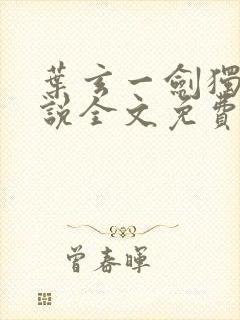 葉玄一劍獨
說全文免費
曾春暉